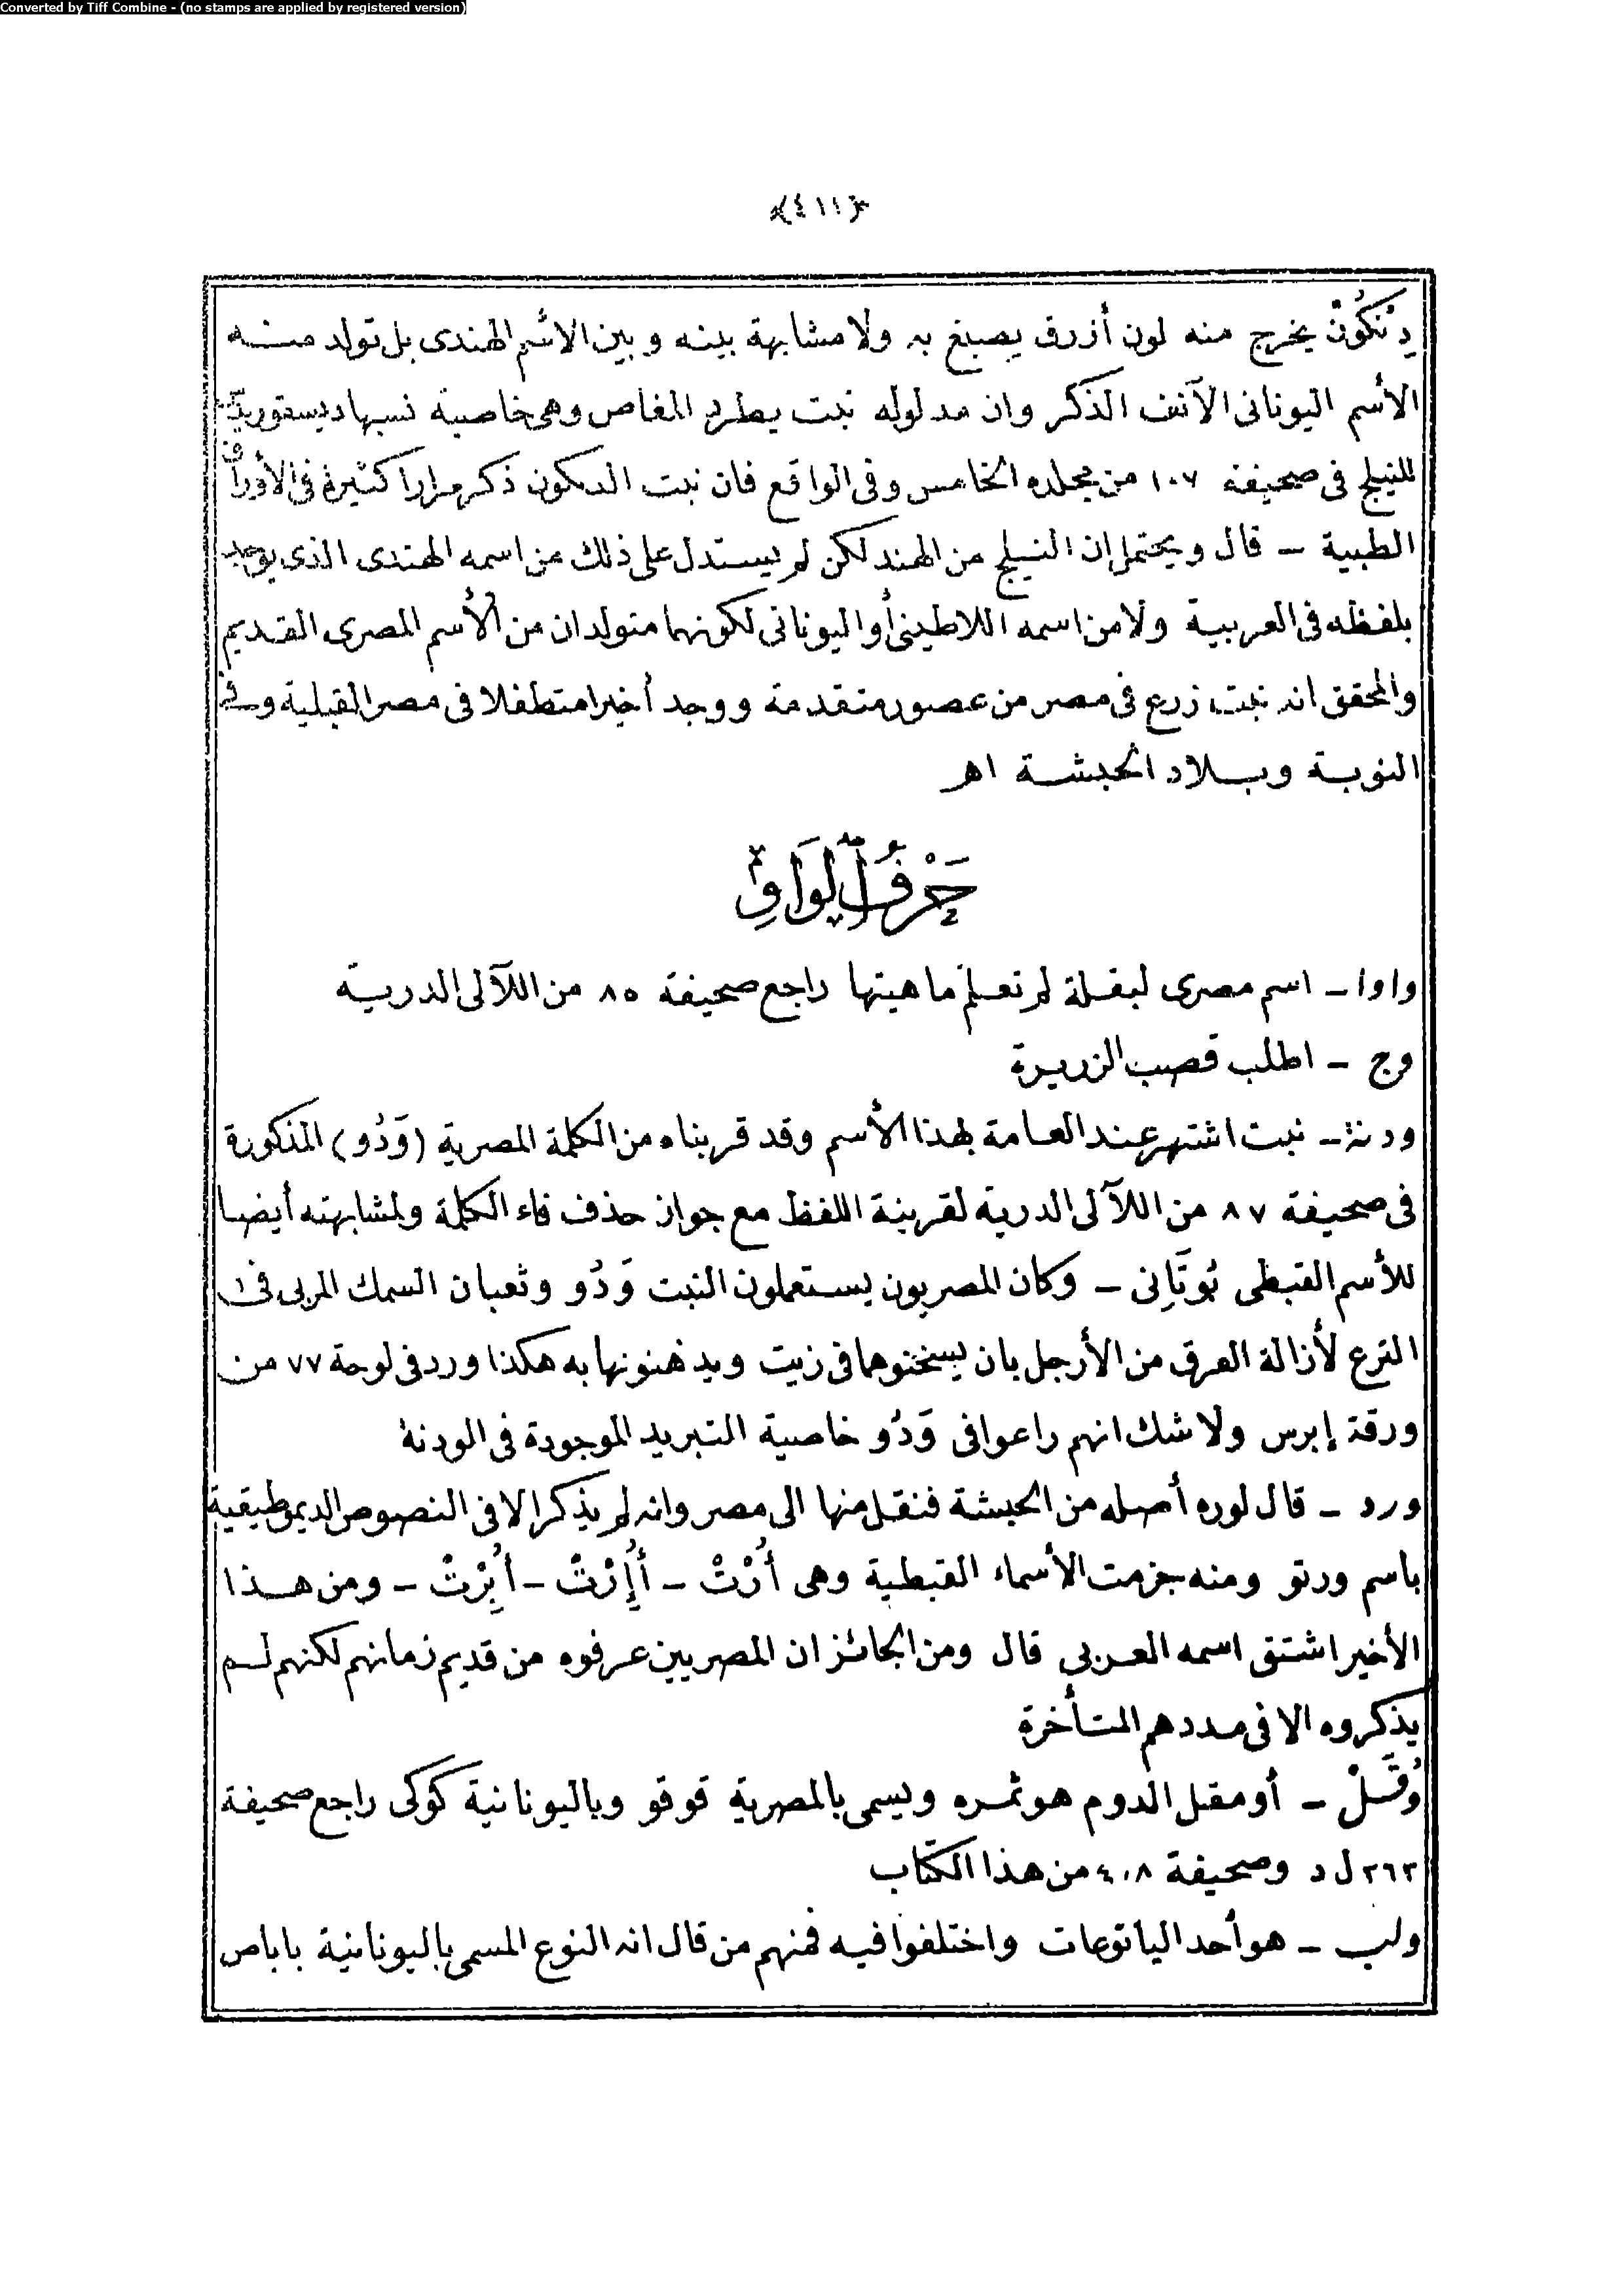 Converted by Tiff Combine - (no stamps are applied by registered version)
﴿٤١١﴾
دِنْكُونْ يخرج منه لون أزرق يصبغ به ولا مشابهة بينه وبين الأسم الهندى بل تولد منه
الأسم اليونانى الآنف الذكر وان مدلوله نبت يطرد المغاص وهى خاصية نسبها ديسقوريد
للنيلج فى صحيفة ١٠٧ من مجلده الخامس وفى الواقع فان نبت الدنكون ذكر مرارا كثيرة فى الأوراق
الطبية – قال ويحتمل ان النيلج من الهند لكن لم يستدل على ذلك من اسمه الهندى الذى يوجد
بلفظه فى العربية ولا من اسمه اللاطينى أو اليونانى لكونهما متولدان من الأسم المصرى القديم
والمحقق انه نبت زرع فى مصر من عصور متقدمة ووجد أخيرا متطفلا فى مصر القبلية وفى
النوبة وبلاد الحبشة اهـ
حَرْفُ الوَاوِ
واوا – اسم مصرى لبقلة لم تعلم ماهيتها راجع صحيفة ٨٥ من اللآلى الدرية
وج – اطلب قصب الزريرة
ودنة – نبت اشتهر عند العامة بهذا الأسم وقد قربناه من الكلمة المصرية (وَدُو) المذكورة
فى صحيفة ٨٧ من اللآلى الدرية لقرينة اللفظ مع جواز حذف فاء الكلمة ولمشابهته أيضا
للأسم القبطى بُوتَانِى – وكان المصريون يستعملون النبت وَدُو وثعبان السمك المربى فى
الترع لأزالة العرق من الأرجل بان يسخنوهما فى زيت ويدهنونها به هكذا ورد فى لوحة ٧٧ من
ورقة إبرس ولا شك انهم راعوا فى وَدُو خاصية التبريد الموجودة فى الودنة
ورد – قال لوره أصله من الحبشة فنقل منها الى مصر وانه لم يذكر إلا فى النصوص الديموطيقية
باسم ورتو ومنه جزمت الأسماء القبطية وهى أُرْتْ – أُإِرْتْ – أُبِرْتْ – ومن هذا
الأخير اشتق اسمه العربى قال ومن الجائز ان المصريين عرفوه من قديم زمانهم لكنهم لم
يذكروه الا فى مددهم المتأخرة
وُقَلْ – أو مقل الدوم هو ثمره ويسمى بالمصرية قوقو وباليونانية كوكى راجع صحيفة
٢٦٣ ل د وصحيفة ٤٠٨ من هذا الكتاب
ولب – هو أحد اليأتوعات واختلفوا فيه فمنهم من قال انه النوع المسمى باليونانية باباص